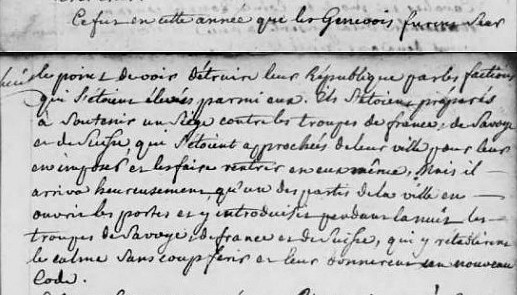 Ce fut en cette année que les Genevois furent sur
le point de voir détruire leur République par les factions
qui s'etoient élevées parmi eux. Ils s'etoient préparés
à soutenir un siège contre les troupes de france, de Savoye
et de Suisse, qui s'etoient approchées de leur ville pour leur
en imposer et les faire rentrer en eux même, Mais il
arriva heureusement qu'un des partis de la ville en
ouvrir les portes et y introduisit pendant la nuit les
troupes de Savoye, de france et de Suisse, qui y rétablirent
le calme sans coup férir et leur donnerent un nouveau
Code.